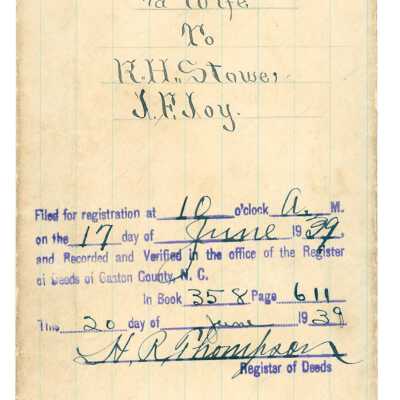 Wife
To
R.H. Stowe,
J.F. Joy.
Filed for registration at 10 o'clock A. M.
on the 17 day of June 1939.
and Recorded and Verified in the office of the Register
of Deeds of Gaston County, N. C.
In Book 358 Page 611
This 20 day of June 1939
H. R. Thompson
Register of Deeds